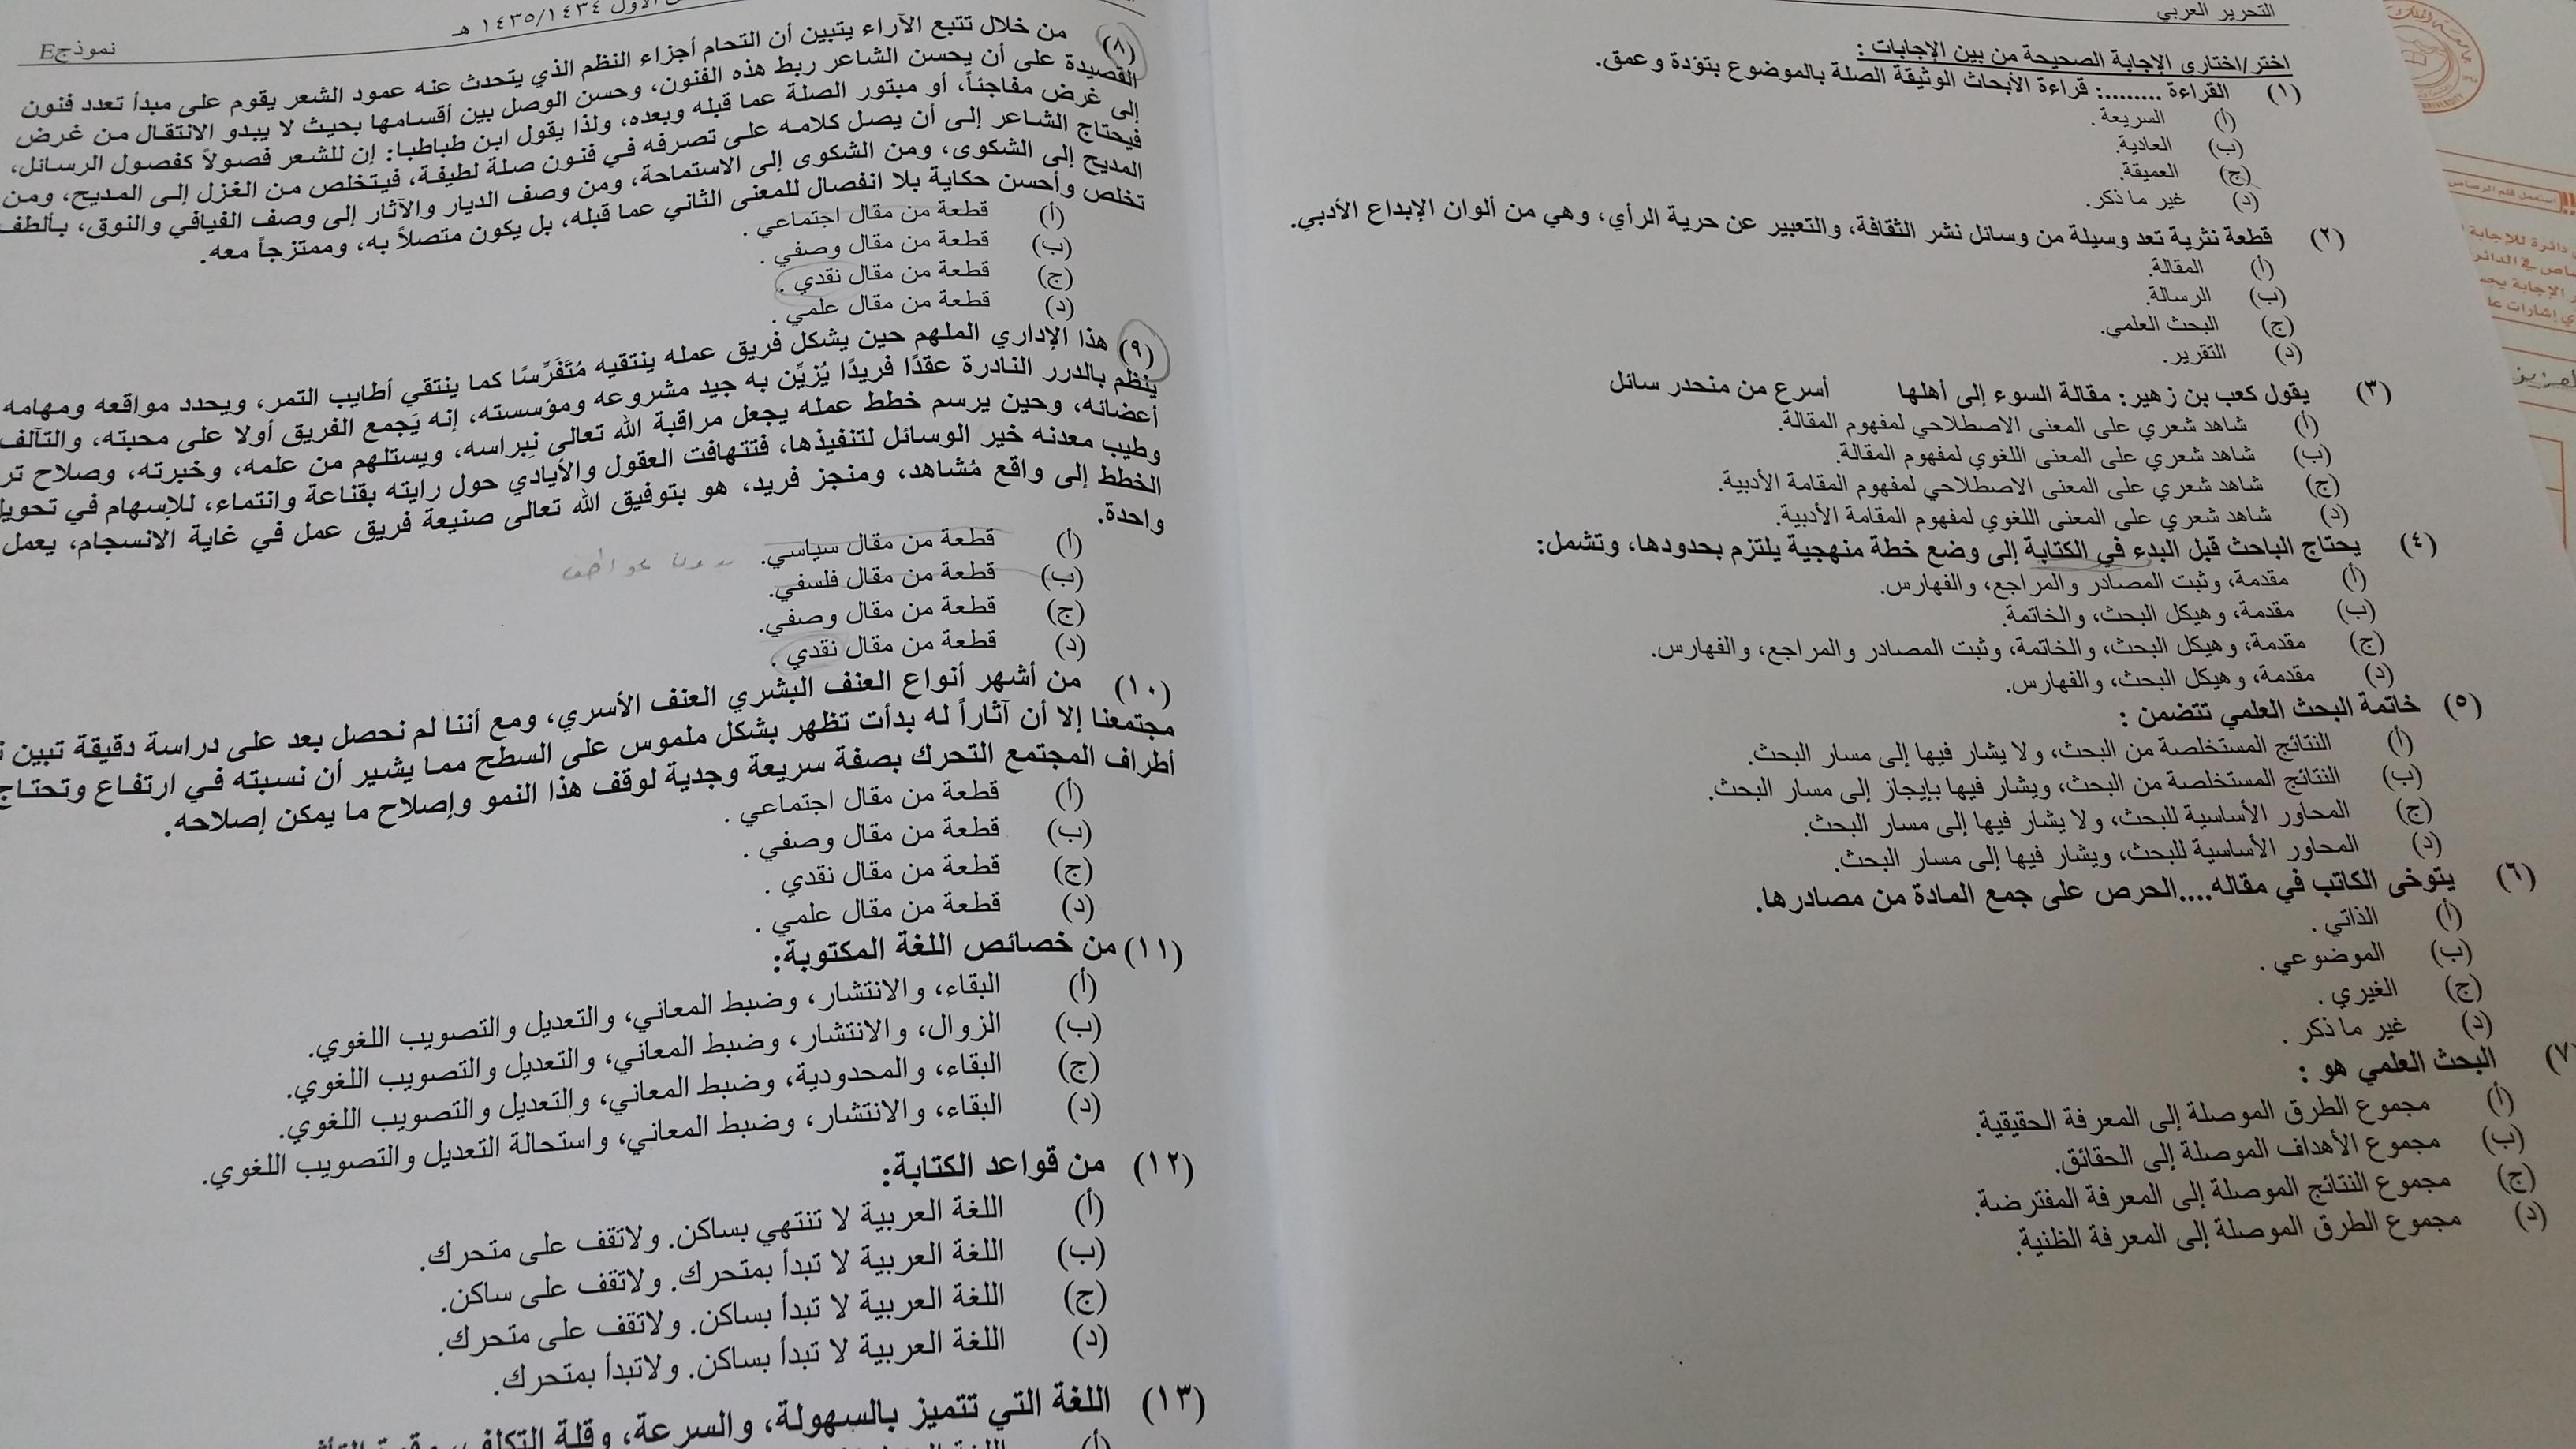 التحرير العربي
اختر/اختاري الإجابة الصحيحة من بين الإجابات :
(١) القراءة ........: قراءة الأبحاث الوثيقة الصلة بالموضوع بتؤدة وعمق.
(أ) السريعة.
(ب) العادية.
(ج) العميقة.
(د) غير ما ذكر.
(٢) قطعة نثرية تعد وسيلة من وسائل نشر الثقافة، والتعبير عن حرية الرأي، وهي من ألوان الإبداع الأدبي.
(أ) المقالة.
(ب) الرسالة.
(ج) البحث العلمي.
(د) التقرير.
(٣) يقول كعب بن زهير: مقالة السوء إلى أهلها أسرع من منحدر سائل
(أ) شاهد شعري على المعنى الاصطلاحي لمفهوم المقالة.
(ب) شاهد شعري على المعنى اللغوي لمفهوم المقالة.
(ج) شاهد شعري على المعنى الاصطلاحي لمفهوم المقامة الأدبية.
(د) شاهد شعري على المعنى اللغوي لمفهوم المقامة الأدبية.
(٤) يحتاج الباحث قبل البدء في الكتابة إلى وضع خطة منهجية يلتزم بحدودها، وتشمل:
(أ) مقدمة، وثبت المصادر والمراجع، والفهارس.
(ب) مقدمة، وهيكل البحث، والخاتمة.
(ج) مقدمة، وهيكل البحث، والخاتمة، وثبت المصادر والمراجع، والفهارس.
(د) مقدمة، وهيكل البحث، والفهارس.
(٥) خاتمة البحث العلمي تتضمن :
(أ) النتائج المستخلصة من البحث، ولا يشار فيها إلى مسار البحث.
(ب) النتائج المستخلصة من البحث، ويشار فيها بإيجاز إلى مسار البحث.
(ج) المحاور الأساسية للبحث، ولا يشار فيها إلى مسار البحث.
(د) المحاور الأساسية للبحث، ويشار فيها إلى مسار البحث.
(٦) يتوخى الكاتب في مقاله....الحرص على جمع المادة من مصادرها.
(أ) الذاتي .
(ب) الموضوعي .
(ج) الغيري .
(د) غير ما ذكر .
(٧) البحث العلمي هو :
(أ) مجموع الطرق الموصلة إلى المعرفة الحقيقية.
(ب) مجموع الأهداف الموصلة إلى الحقائق.
(ج) مجموع النتائج الموصلة إلى المعرفة المفترضة.
(د) مجموع الطرق الموصلة إلى المعرفة الظنية.
الأول ١٤٣٥/١٤٣٤ هـ
نموذجE
(٨) من خلال تتبع الآراء يتبين أن التحام أجزاء النظم الذي يتحدث عنه عمود الشعر يقوم على مبدأ تعدد فنون
القصيدة على أن يحسن الشاعر ربط هذه الفنون، وحسن الوصل بين أقسامها بحيث لا يبدو الانتقال من غرض
إلى غرض مفاجئاً، أو مبتور الصلة عما قبله وبعده، ولذا يقول ابن طباطبا: إن للشعر فصولاً كفصول الرسائل،
فيحتاج الشاعر إلى أن يصل كلامه على تصرفه في فنون صلة لطيفة، فيتخلص من الغزل إلى المديح، ومن
المديح إلى الشكوى، ومن الشكوى إلى الاستماحة، ومن وصف الديار والآثار إلى وصف الفيافي والنوق، بألطف
تخلص وأحسن حكاية بلا انفصال للمعنى الثاني عما قبله، بل يكون متصلاً به، وممتزجاً معه.
(أ) قطعة من مقال اجتماعي .
(ب) قطعة من مقال وصفي .
(ج) قطعة من مقال نقدي .
(د) قطعة من مقال علمي .
(٩) هذا الإداري الملهم حين يشكل فريق عمله ينتقيه مُتَفَرِّسًا كما ينتقي أطايب التمر، ويحدد مواقعه ومهامه
ينظم بالدرر النادرة عقدًا فريدًا يُزيِّن به جيد مشروعه ومؤسسته، إنه يَجمع الفريق أولا على محبته، والتآلف
أعضائه، وحين يرسم خطط عمله يجعل مراقبة الله تعالى نِبراسه، ويستلهم من علمه، وخبرته، وصلاح
وطيب معدنه خير الوسائل لتنفيذها، فتتهافت العقول والأيادي حول رايته بقناعة وانتماء، للإسهام في تحويل
الخطط إلى واقع مُشاهد، ومنجز فريد، هو بتوفيق الله تعالى صنيعة فريق عمل في غاية الانسجام، يعمل
واحدة.
(أ) قطعة من مقال سياسي.
بدون عواطف
(ب) قطعة من مقال فلسفي.
(ج) قطعة من مقال وصفي.
(د) قطعة من مقال نقدي .
(١٠) من أشهر أنواع العنف البشري العنف الأسري، ومع أننا لم نحصل بعد على دراسة دقيقة تبين
مجتمعنا إلا أن آثاراً له بدأت تظهر بشكل ملموس على السطح مما يشير أن نسبته في ارتفاع وتحتاج
أطراف المجتمع التحرك بصفة سريعة وجدية لوقف هذا النمو وإصلاح ما يمكن إصلاحه.
(أ) قطعة من مقال اجتماعي .
(ب) قطعة من مقال وصفي .
(ج) قطعة من مقال نقدي .
(د) قطعة من مقال علمي .
(١١) من خصائص اللغة المكتوبة:
(أ) البقاء، والانتشار، وضبط المعاني، والتعديل والتصويب اللغوي.
(ب) الزوال، والانتشار، وضبط المعاني، والتعديل والتصويب اللغوي.
(ج) البقاء، والمحدودية، وضبط المعاني، والتعديل والتصويب اللغوي.
(د) البقاء، والانتشار، وضبط المعاني، واستحالة التعديل والتصويب اللغوي.
(١٢) من قواعد الكتابة:
(أ) اللغة العربية لا تنتهي بساكن. ولاتقف على متحرك.
(ب) اللغة العربية لا تبدأ بمتحرك. ولاتقف على ساكن.
(ج) اللغة العربية لا تبدأ بساكن. ولاتقف على متحرك.
(د) اللغة العربية لا تبدأ بساكن. ولاتبدأ بمتحرك.
(١٣) اللغة التي تتميز بالسهولة، والسرعة، وقلة التكلف،
استعمل قلم الرصاص